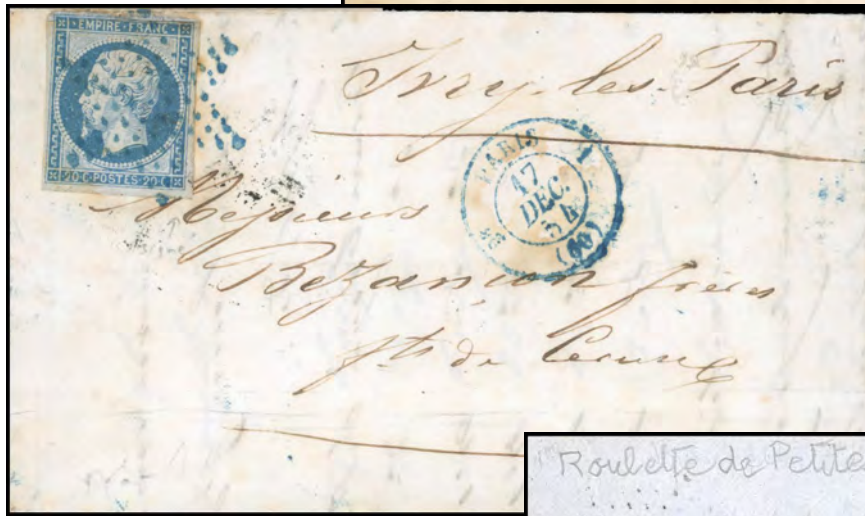 EMPIRE · FRANC ·
20 C · POSTES · 20 C
Ivry-les-Paris
PARIS 1
17
DEC.
54
(60)
Messieurs
Bezançon frères
fts de Ceruse
Roulette de Petite